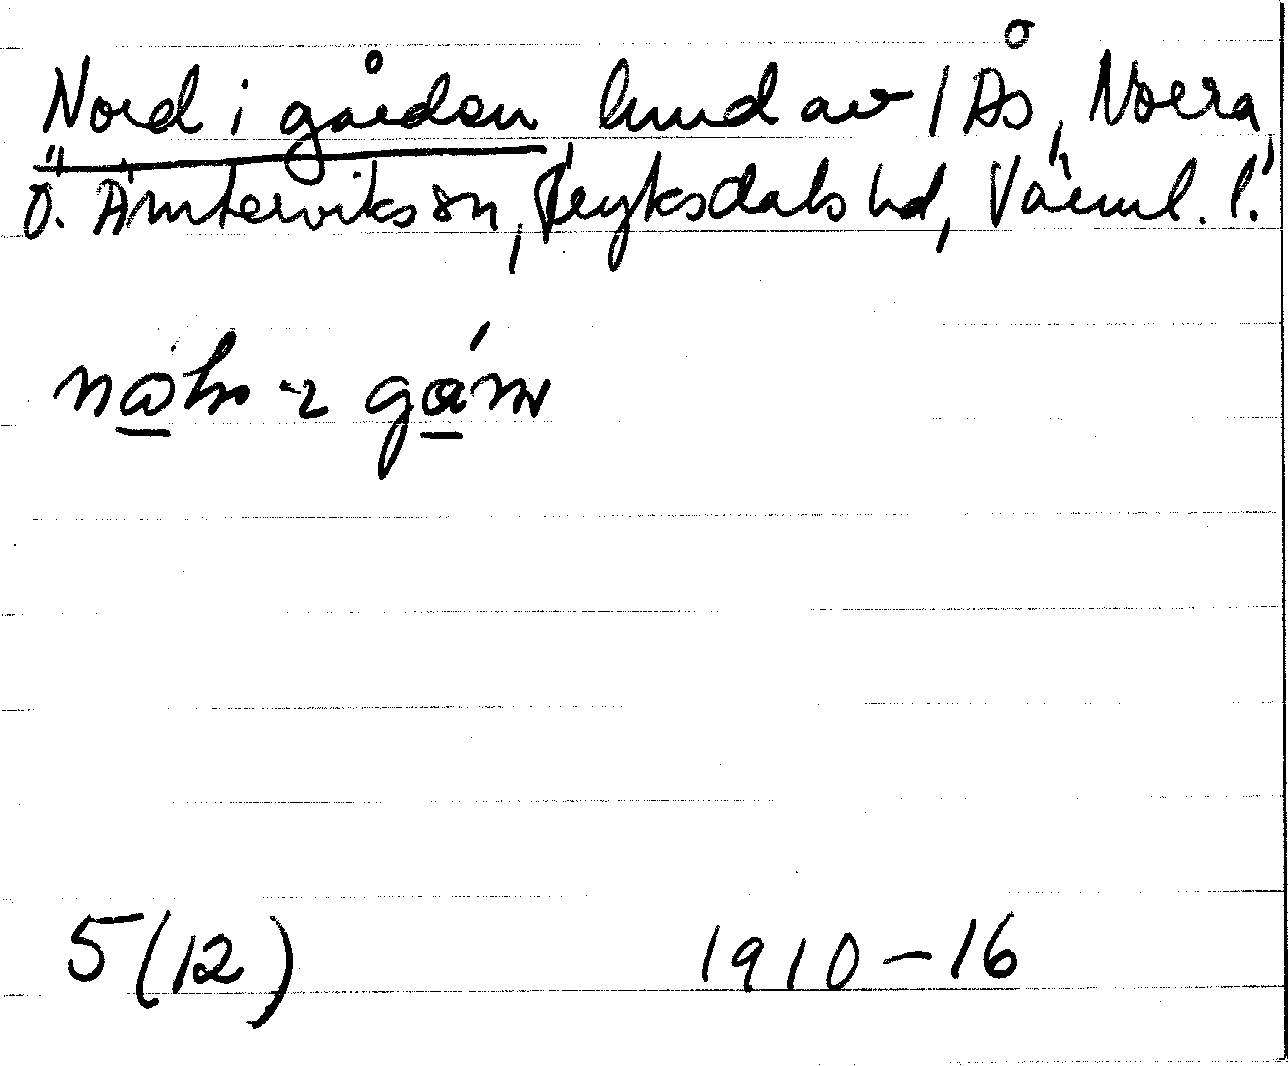 Nord i gården hmd av 1 Ås, Norra,
Ö. Ämterviks sn, Fryksdals hd, Värml. l.
5(12) 1910-16